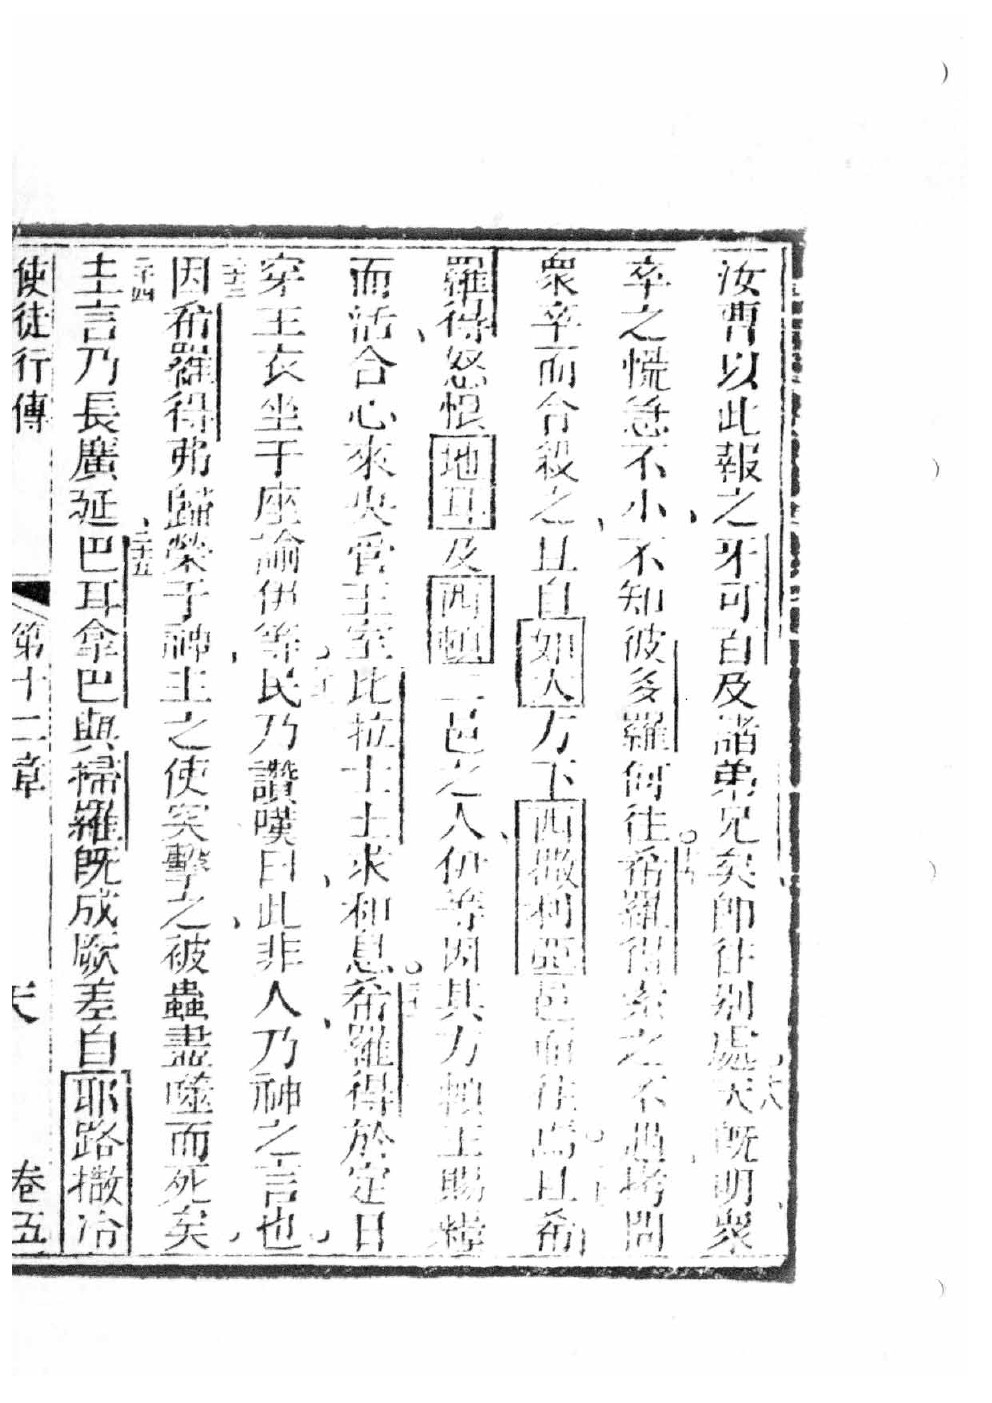 汝曹以此報之牙可百及諸弟兄矣即往别處 十八 天既明眾
卒之慌忩不小不知彼多羅何往 十九 希羅得索之不遇拷問
眾卒而令殺之且自如大方下西撒利亞邑而住焉 二十 且希
羅得怒恨地耳及西頓二邑之人伊等因其方賴王賜糧
而活合心來央管王室比拉士土求和息 二十一 希羅得於定日
穿王衣坐于座諭伊等民 二十二 乃讚嘆曰此非人乃神之言也
二十三 因希羅得弗歸榮于神主之使突擊之被蟲盡噬而死矣
二十四 主言乃長廣延 二十五 巴耳拿巴與掃羅既成厥差自耶路撒冷
使徒行傳 第十二章 天 卷五